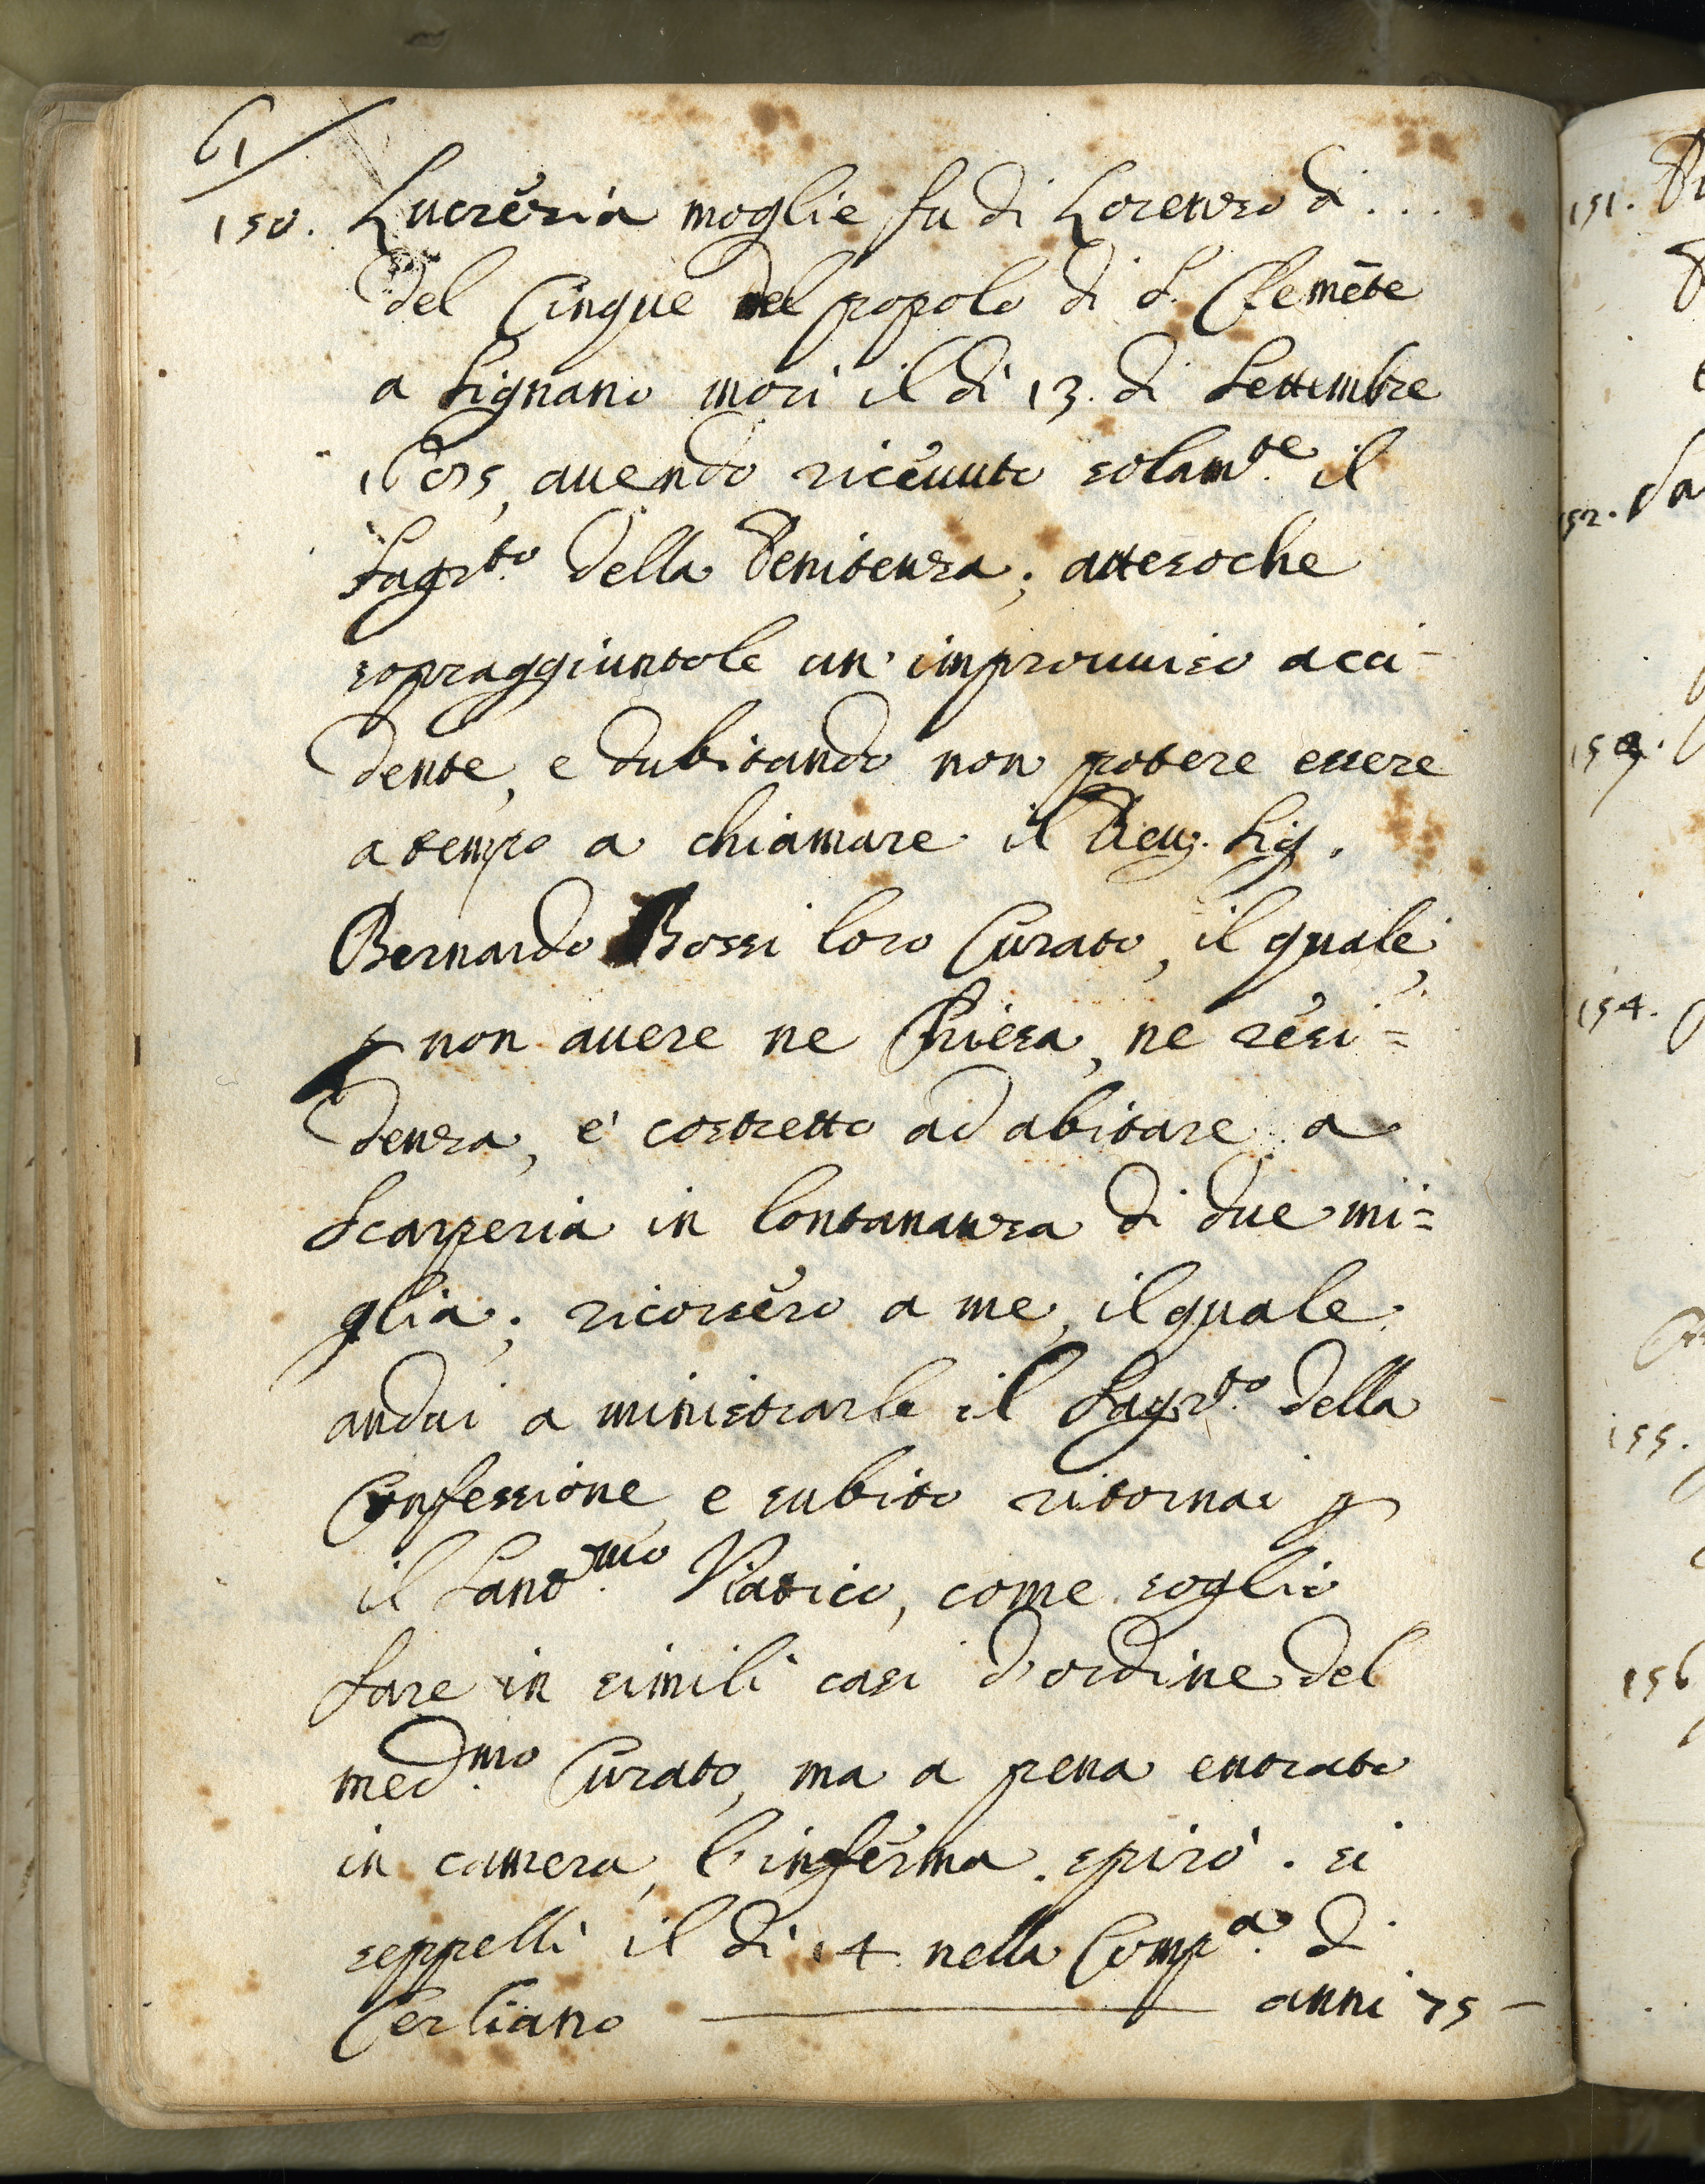 61
150. Lucrezia moglie fu di Lorenzo di ...
del Cinque nel popolo di S. Clemēte
a Signano morì il dì 13. di Settembre
avendo ricevuto solam.te il
Sagr.to della Penitenza; atteso che
sopraggiuntole un' improvviso acci-
dente, e dubitando non potere essere
a tempo a chiamare il Sig.
Bernardo Bossi loro Curato, il quale,
p non avere ne Chiesa, ne resi=
denza, e' costretto ad abitare a
Scarperia in lontananza di due mi=
glia; ricorsero a me, il quale
andai a ministrarle il Sagr.to della
Confessione, e subito ritornai p
il Sant.mo Viatico, come soglio
fare in simili casi d'ordine del
med.mo Curato, ma a pena entrato
in camera, l'inferma spirò. si
seppellì il dì 14 nella Comp.a di
Cerliano anni 75 –
151.
152. Sa
153.
154.
155.
156